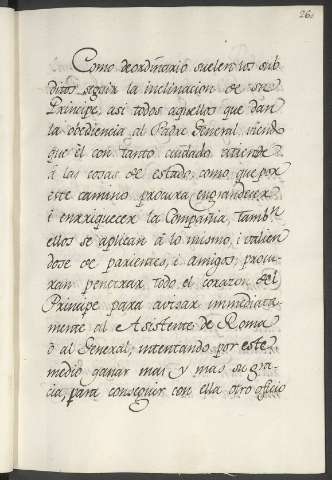 26.
Como de ordinario suelen los sub
ditos seguir la inclinacion de su
Principe, asi todos aquellos que dan
la obediencia al Padre General, viendo
que el con tanto cuidado atiende
á las cosas de estado, como que por
este camino procura engrandecer
i enrriquecer la Compañia, tambn
ellos se aplican á lo mismo, i valien
dose de parientes, i amigos, procu-
ran penetrar todo el corazon del
Principe para avisar immediata-
mente al Asistente de Roma
ó al General, intentando por este
medio ganar mas y mas su gra-
cia, para conseguir con ella otro oficio